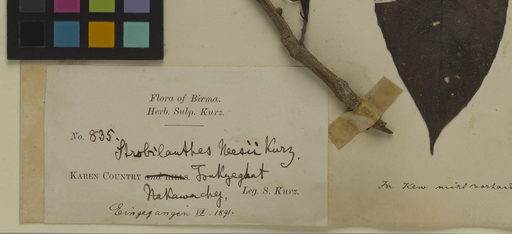 Flora of Birma.
Herb. Sulp. Kurz.
No. 835.
Strobilanthes Neesii Kurz.
KAREN COUNTRY and HILLS.
Leg. S. Kurz.
Eingegangen VI. 1891.
In Kew nicht vorhand